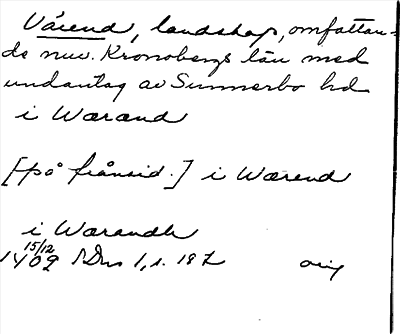 Värend, landskap, omfattan-
de nuv. Kronobergs län med
undantag av Sunnerbo hd
i Wærænd
[på frånsid.] i Wærend
i Warandh
15/12
1409 SDns 1, s. 187 orig